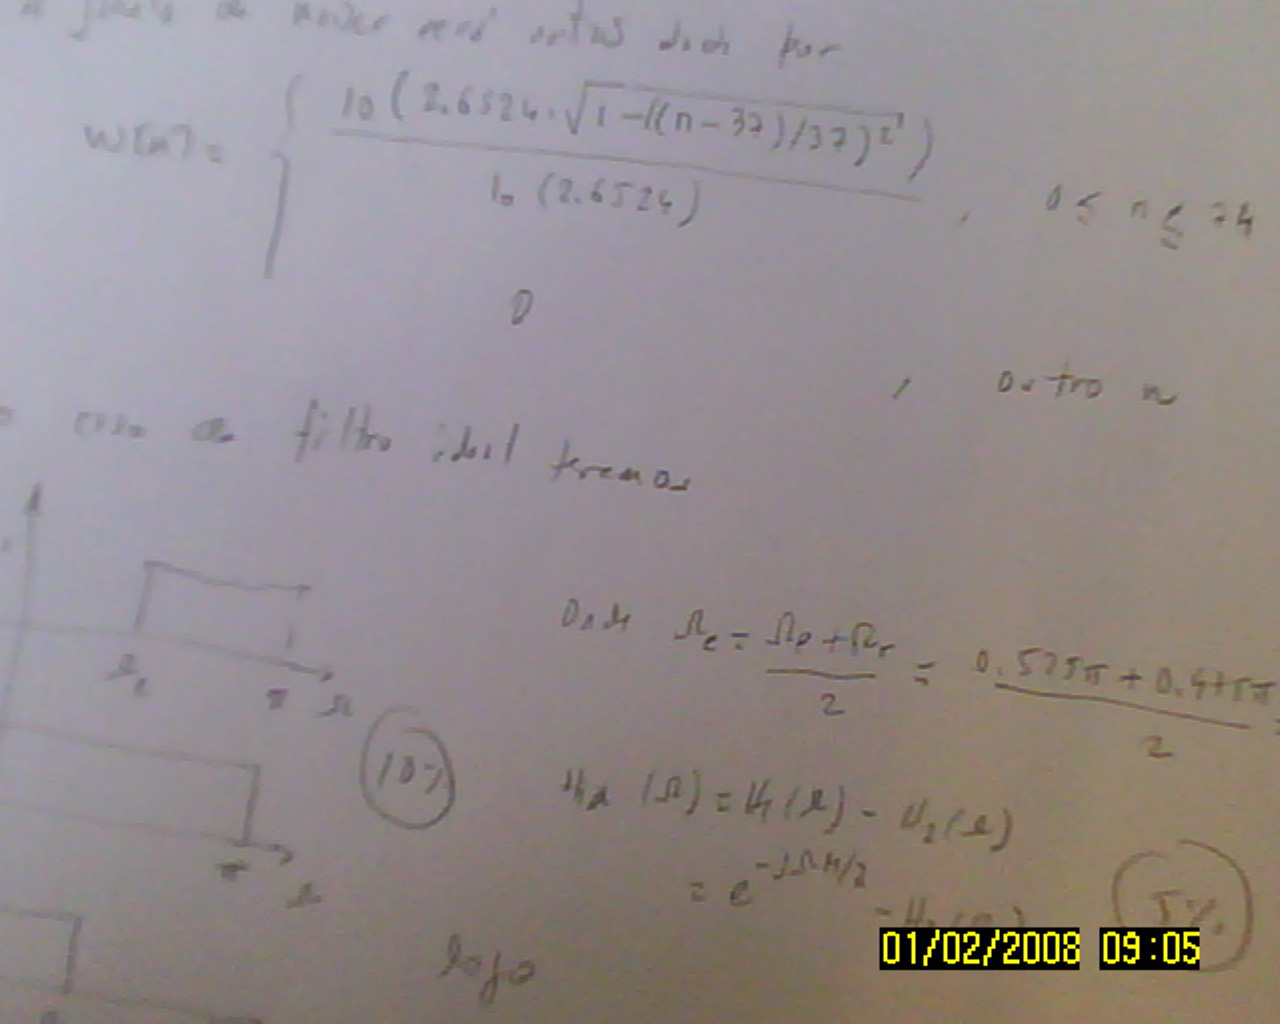 a janela de kaiser será então dada por
w[n] = { I0 ( 2.6524 · √1 - ((n - 37)/37)² )
I0 (2.6524) , 0 ≤ n ≤ 74
0 , outro n
caso de filtro ideal teremos
Onde Ωc = Ωp + Ωr / 2 = 0.575π + 0.475π / 2
Ωc π Ω
10%
Hd (Ω) = H1 (Ω) - H2 (Ω)
π Ω
= e^-jΩM/2 - H2 (Ω)
5%
logo
01/02/2008 09:05